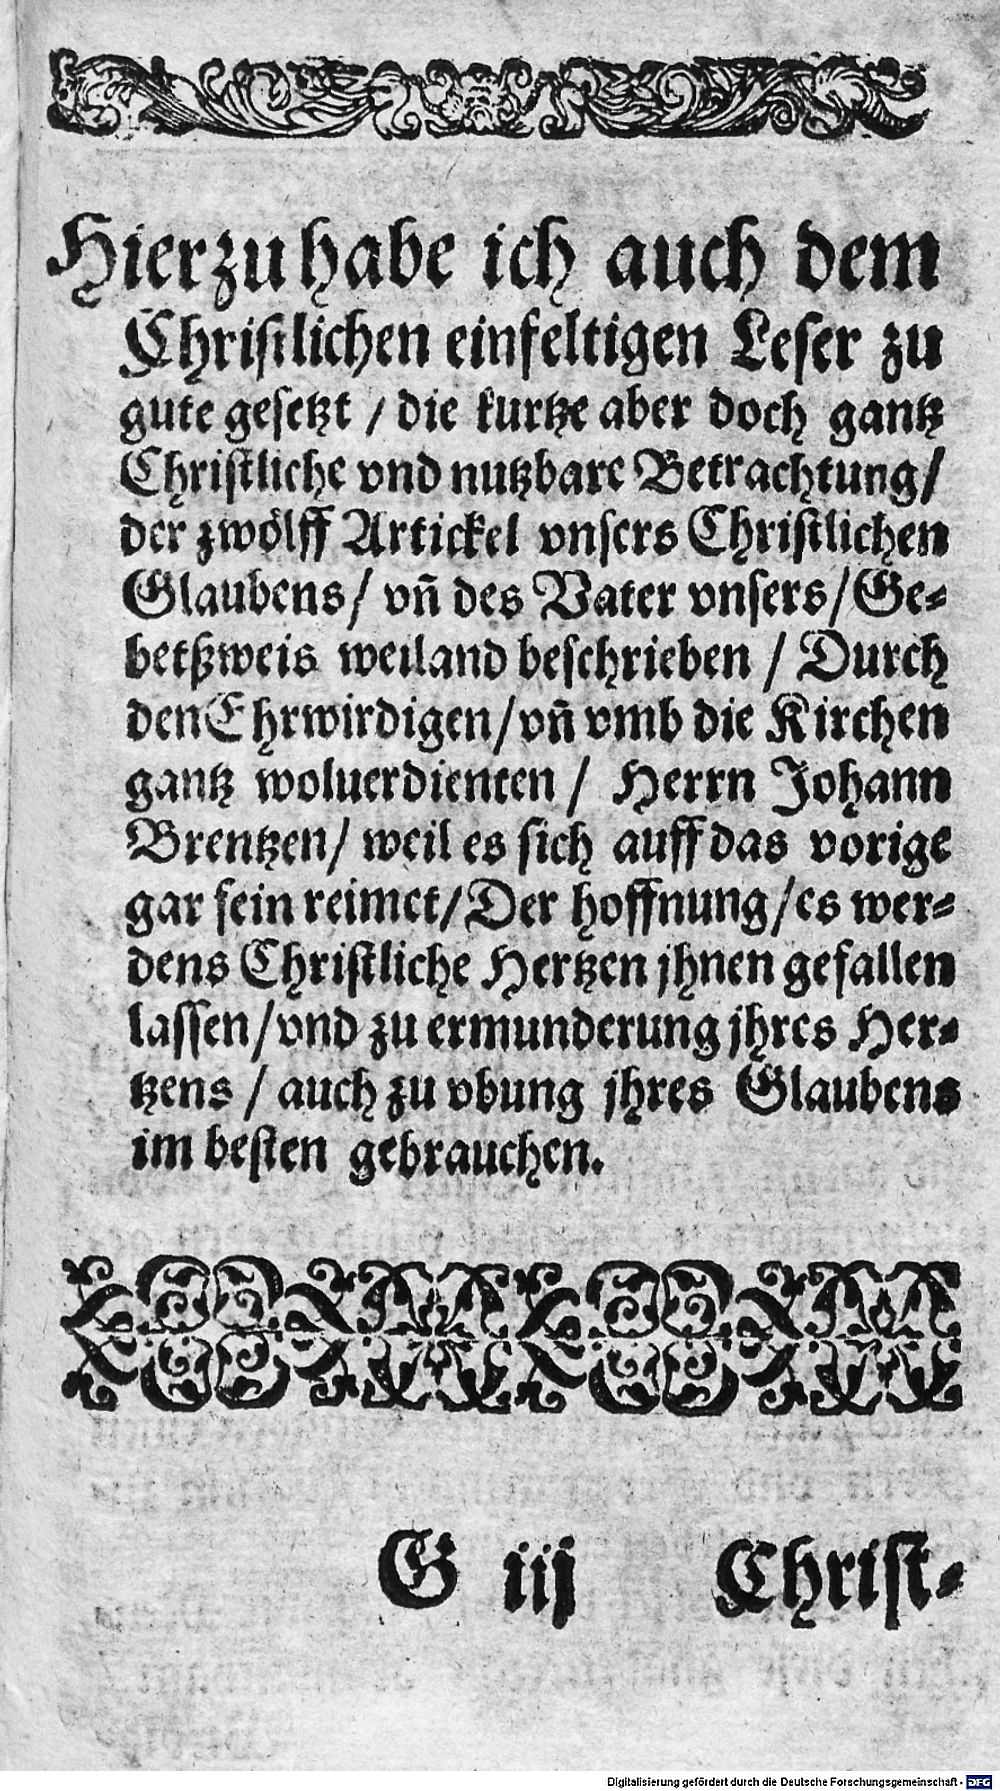 Hierzu habe ich auch dem
Christlichen einfeltigen Leser zu
gute gesetzt / die kurtze aber doch gantz
Christliche vnd nutzbare Betrachtung/
der zwölff Artickel vnsers Christlichen
Glaubens/ vñ des Vater vnsers/Ge-
betßweis weiland beschrieben / Durch
den Ehrwirdigen/vñ vmb die Kirchen
gantz woluerdienten / Herrn Johann
Brentzen/ weil es sich auff das vorige
gar fein reimet/Der hoffnung/es wer-
dens Christliche Hertzen jhnen gefallen
lassen/vnd zu ermunderung jhres Her-
tzens / auch zu vbung jhres Glaubens
im besten gebrauchen.
G iij Christ-
Digitalisierung gefördert durch die Deutsche Forschungsgemeinschaft - DFG